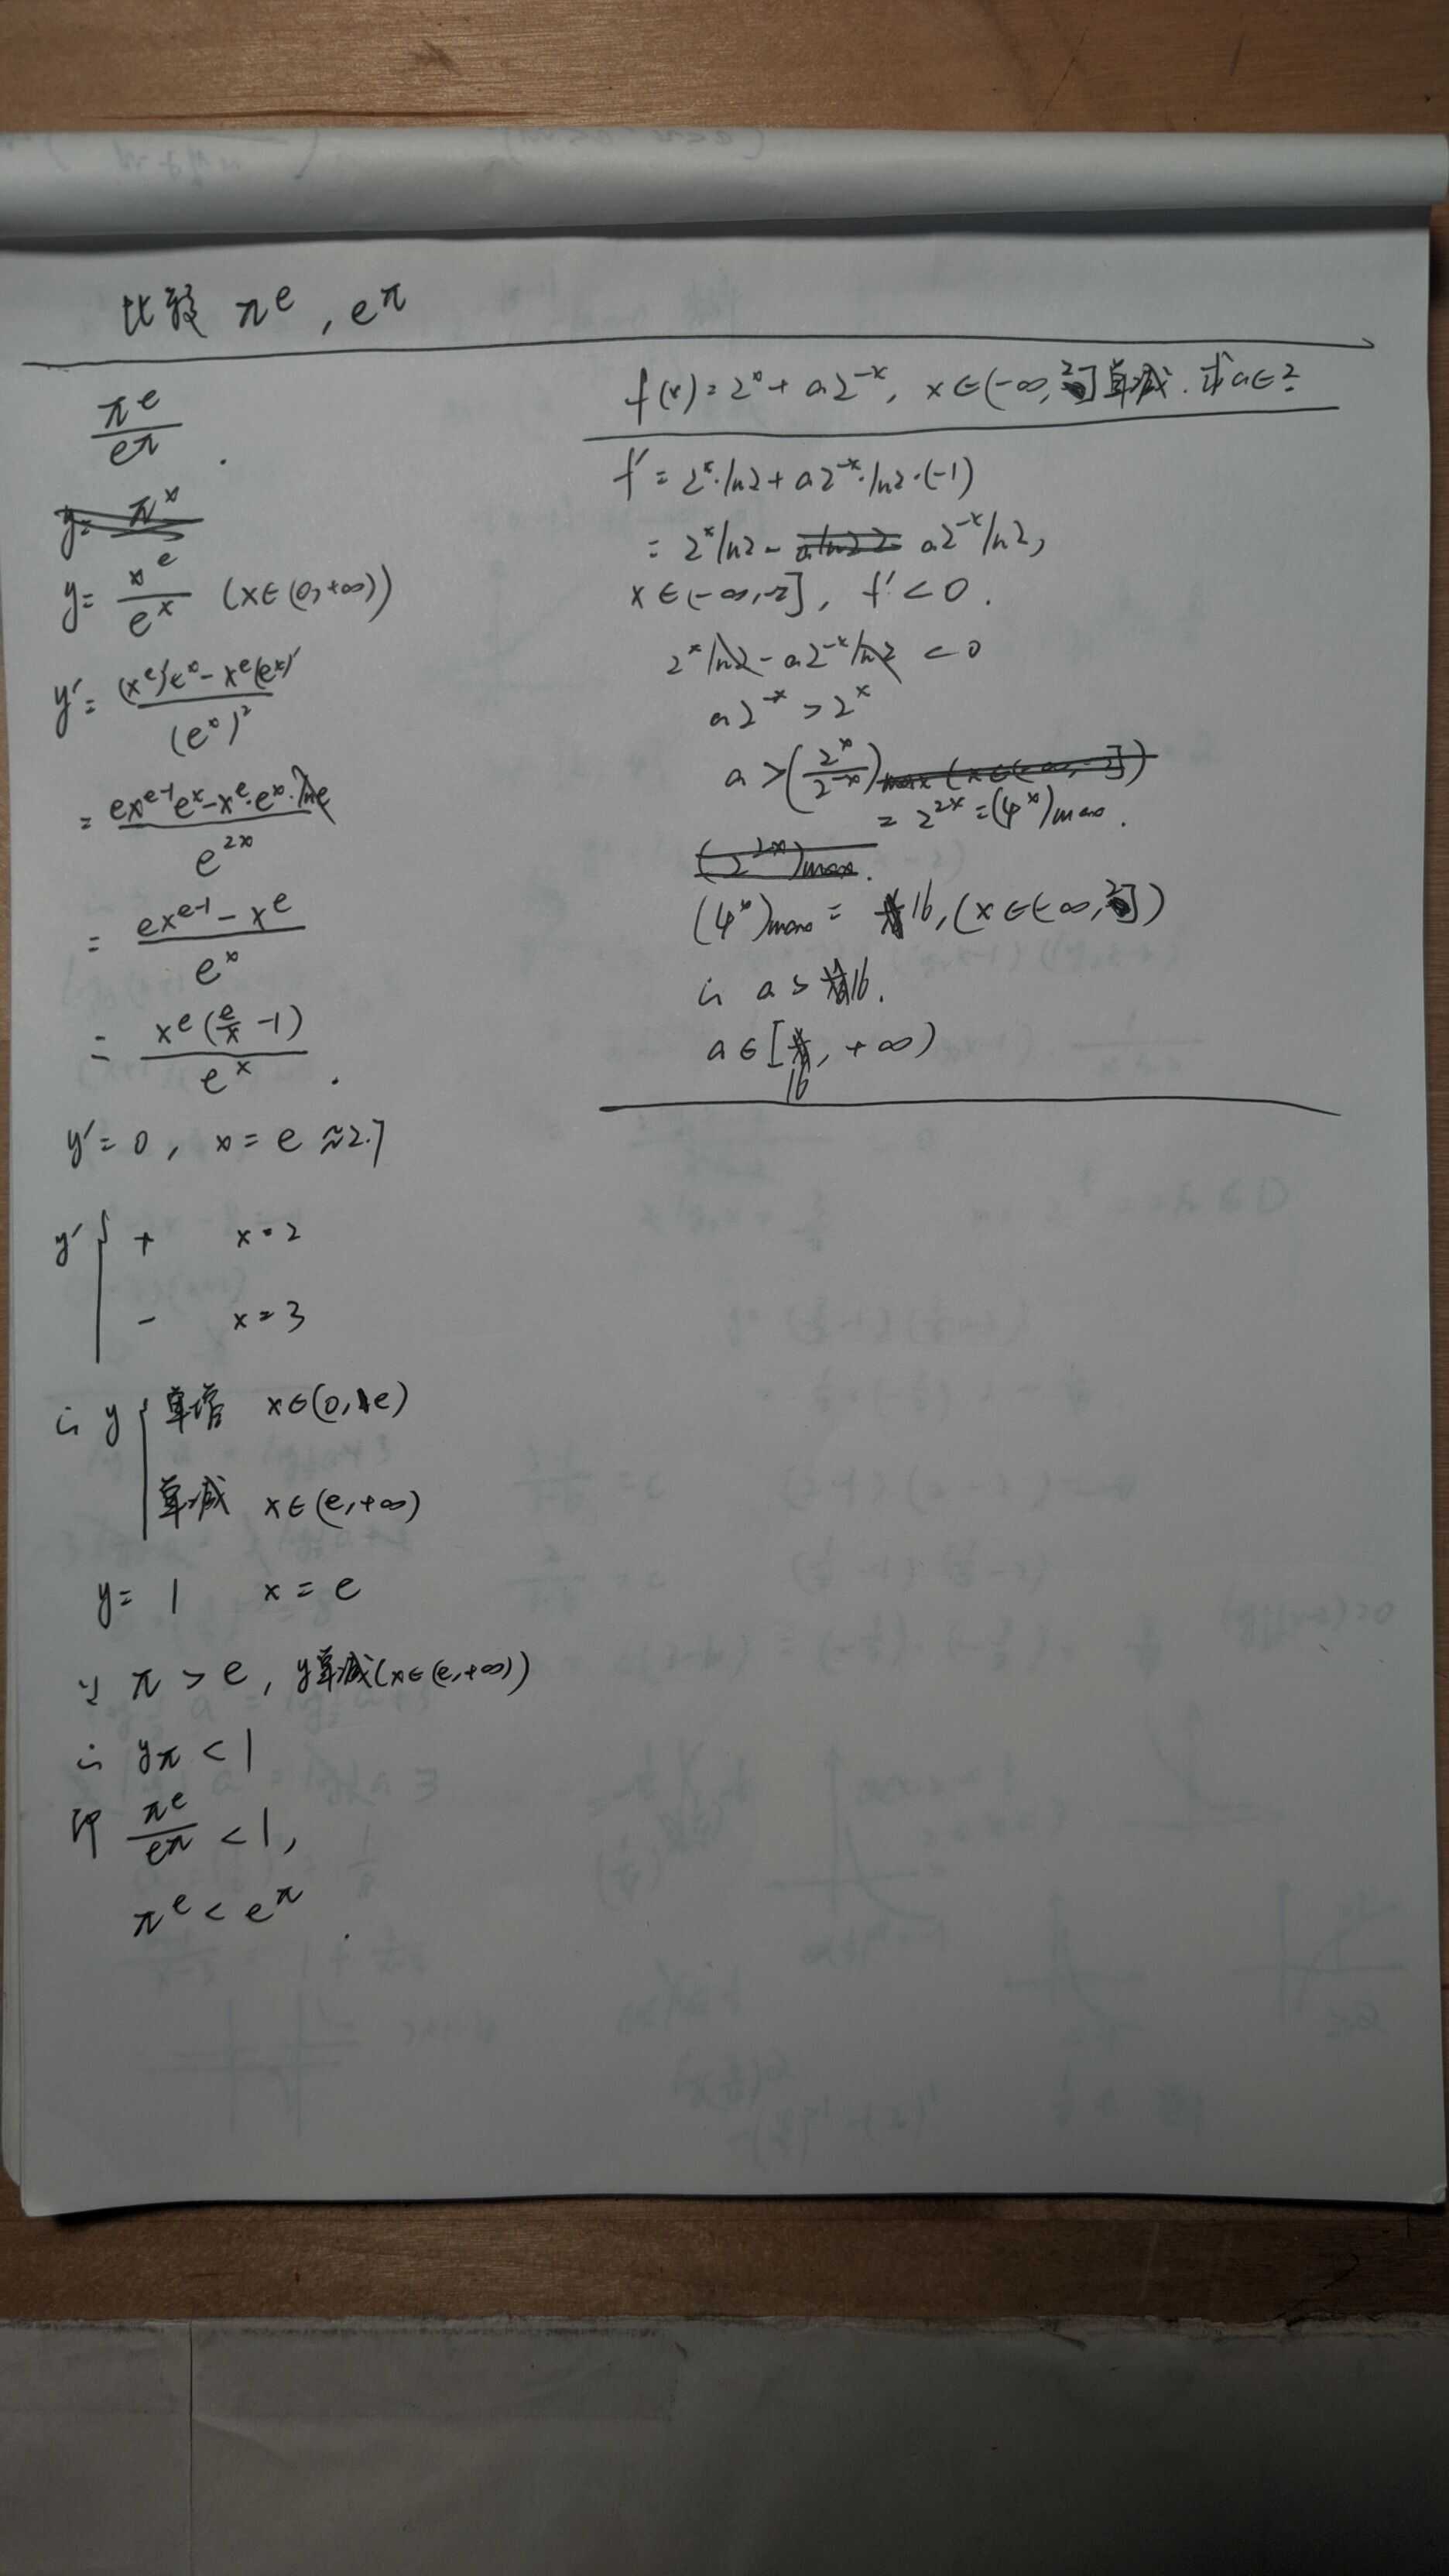 比较 π^e , e^π
π^e / e^π .
y = x^e / e^x (x∈(0,+∞))
y' = ((x^e)'e^x - x^e(e^x)') / (e^x)^2
= (ex^{e-1}e^x - x^e·e^x·ln e) / e^{2x}
= (ex^{e-1} - x^e) / e^x
= x^e(e/x - 1) / e^x .
y' = 0 , x = e ≈ 2.7
y' { + x = 2
- x = 3
∴ y { 单增 x∈(0,e)
单减 x∈(e,+∞)
y = 1 x = e
∵ π > e , y单减(x∈(e,+∞))
∴ yπ < 1
即 π^e / e^π < 1 ,
π^e < e^π .
f(x) = 2^x + a2^{-x}, x∈(-∞,2]单减. 求a∈?
f' = 2^x·ln2 + a2^{-x}·ln2·(-1)
= 2^x ln2 - a2^{-x} ln2,
x∈(-∞,-2], f' < 0 .
2^x ln2 - a2^{-x} ln2 < 0
a2^{-x} > 2^x
a > (2^x / 2^{-x})
= 2^{2x} = (4^x)max .
(4^x)max = 16, (x∈(-∞,2])
∴ a > 16.
a∈[16, +∞)